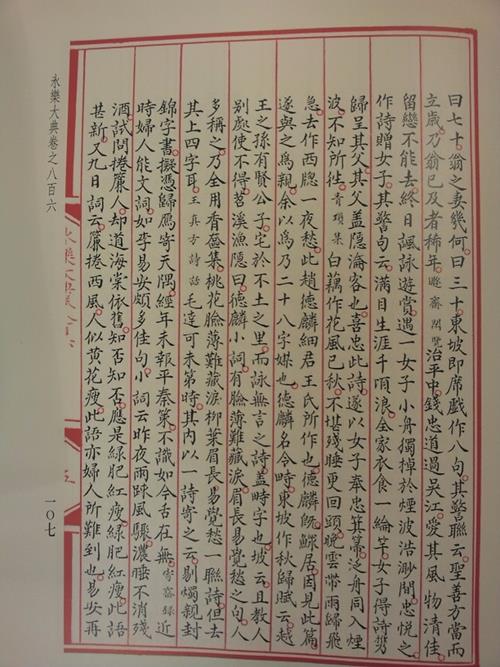 曰七十翁之妻幾何曰三十東坡即席戲作八句其警聯云聖善方當而
立歲乃翁已及者稀年遯齋閑覽治平中錢忠道過吳江愛其風物清佳
留戀不能去終日諷詠遊賞遇一女子小舟獨棹於煙波浩渺間忠悅之
作詩贈女子其警句云滿目生涯千頃浪全家衣食一綸竿女子得詩
歸呈其父其父蓋隱淪客也喜忠此詩遂以女子奉忠箕箒泛舟同入煙
波不知所往青瑣集白藕作花風已秋不堪殘睡更回頭晚雲帶雨歸飛
急去作西牎一夜愁此趙德麟細君王氏所作也德麟既鰥居因見此篇
遂與之爲親余以爲乃二十八字媒也德麟名令時東坡作秋歸賦云越
王之孫有賢公子宅於不土之里而詠無言之詩蓋時字也坡云且教人
別處使不得苕溪漁隱曰德麟小詞有臉薄難藏淚眉長易覺愁之句人
多稱之乃全用香奩集桃花臉薄難藏淚柳葉眉長易覺愁一聯詩但去
其上四字耳王直方詩話毛達可未第時其內以一詩寄之云剔燭親封
錦字書擬憑歸鴈寄天隅經年未報平秦策不識如今舌在無齋錄近
時婦人能文詞如李易安頗多佳句小詞云昨夜雨踈風驟濃睡不消殘
酒試問捲簾人却道海棠依舊知否知否應是綠肥紅瘦綠肥紅瘦此語
甚新又九日詞云簾捲西風人似黃花瘦此語亦婦人所難到也易安再
永樂大典卷之八百六
一〇七